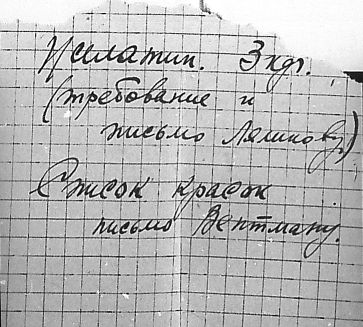 Желатин. 3 кг.
(требование и
письмо Лямину)
Список красок
письмо Вентману.